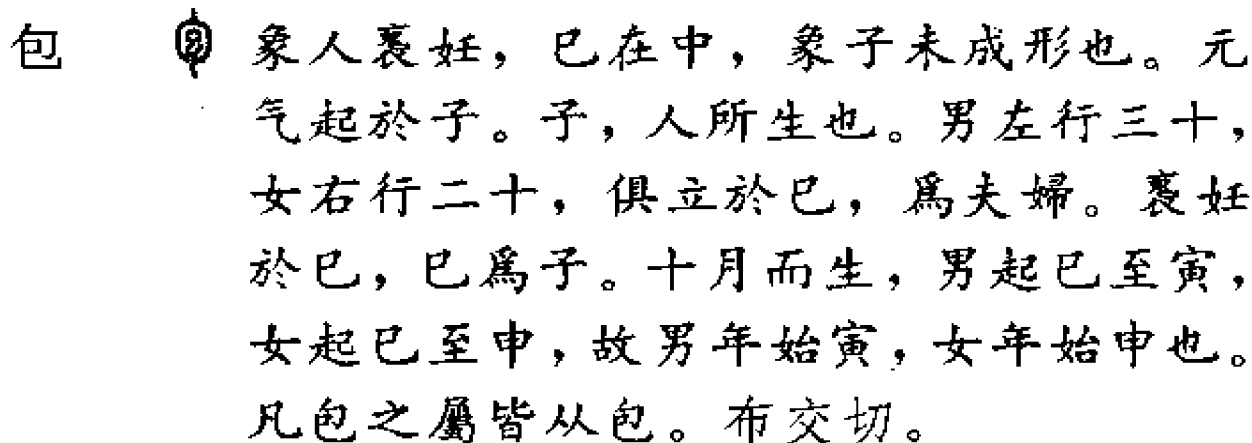 包 象人裹妊，巳在中，象子未成形也。元
气起於子。子，人所生也。男左行三十，
女右行二十，俱立於巳，爲夫婦。裹妊
於巳，巳爲子。十月而生，男起巳至寅，
女起巳至申，故男年始寅，女年始申也。
凡包之屬皆从包。布交切。